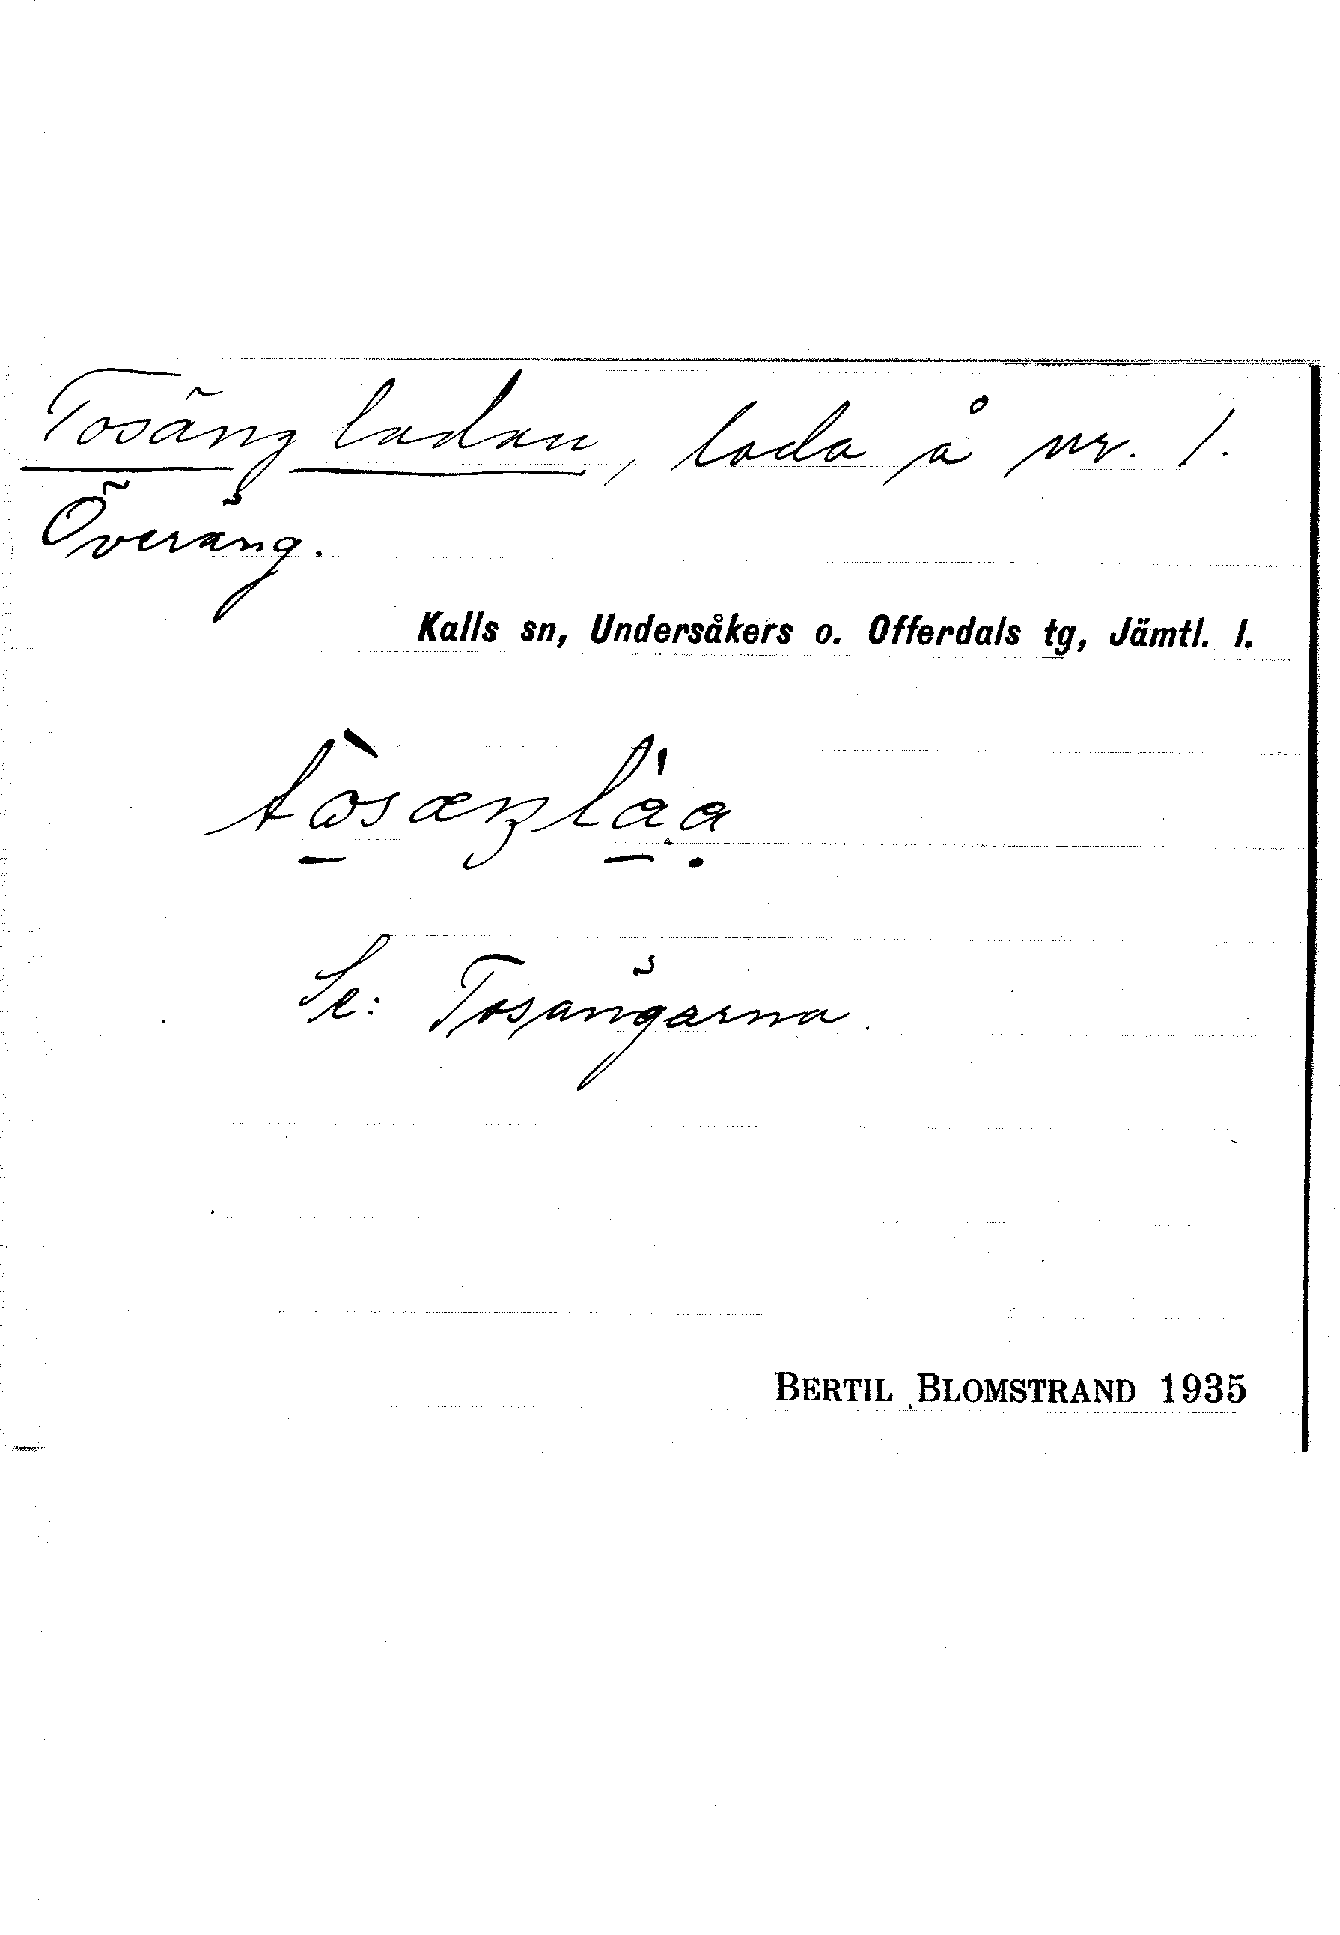 Tosängladan, lada å nr. 1.
Överäng.
Kalls sn, Undersåkers o. Offerdals tg, Jämtl. l.
Se: Tosängarna.
BERTIL BLOMSTRAND 1935